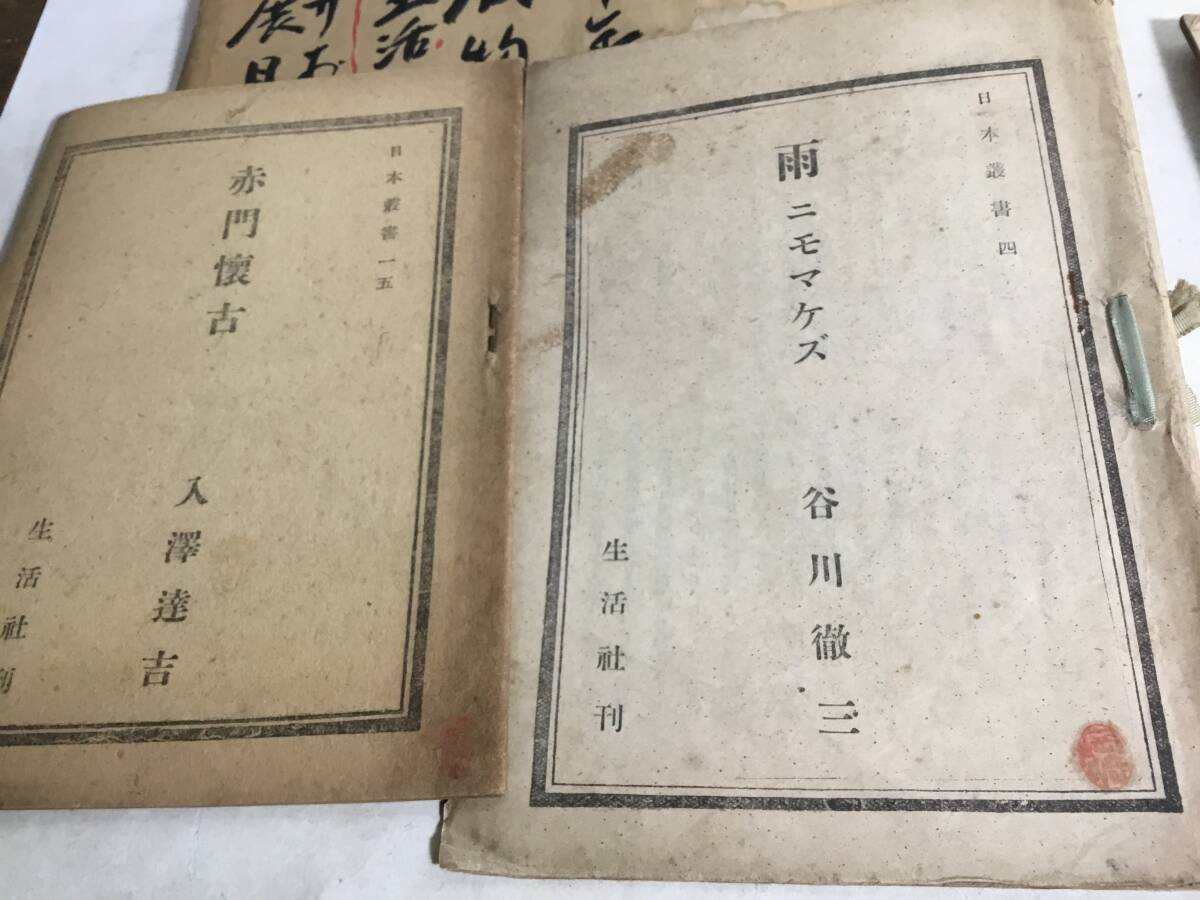 日本叢書四
雨ニモマケズ
谷川徹三
生活社刊
日本叢書一五
赤門懐古
入澤達吉
生活社刊
物
生活
展